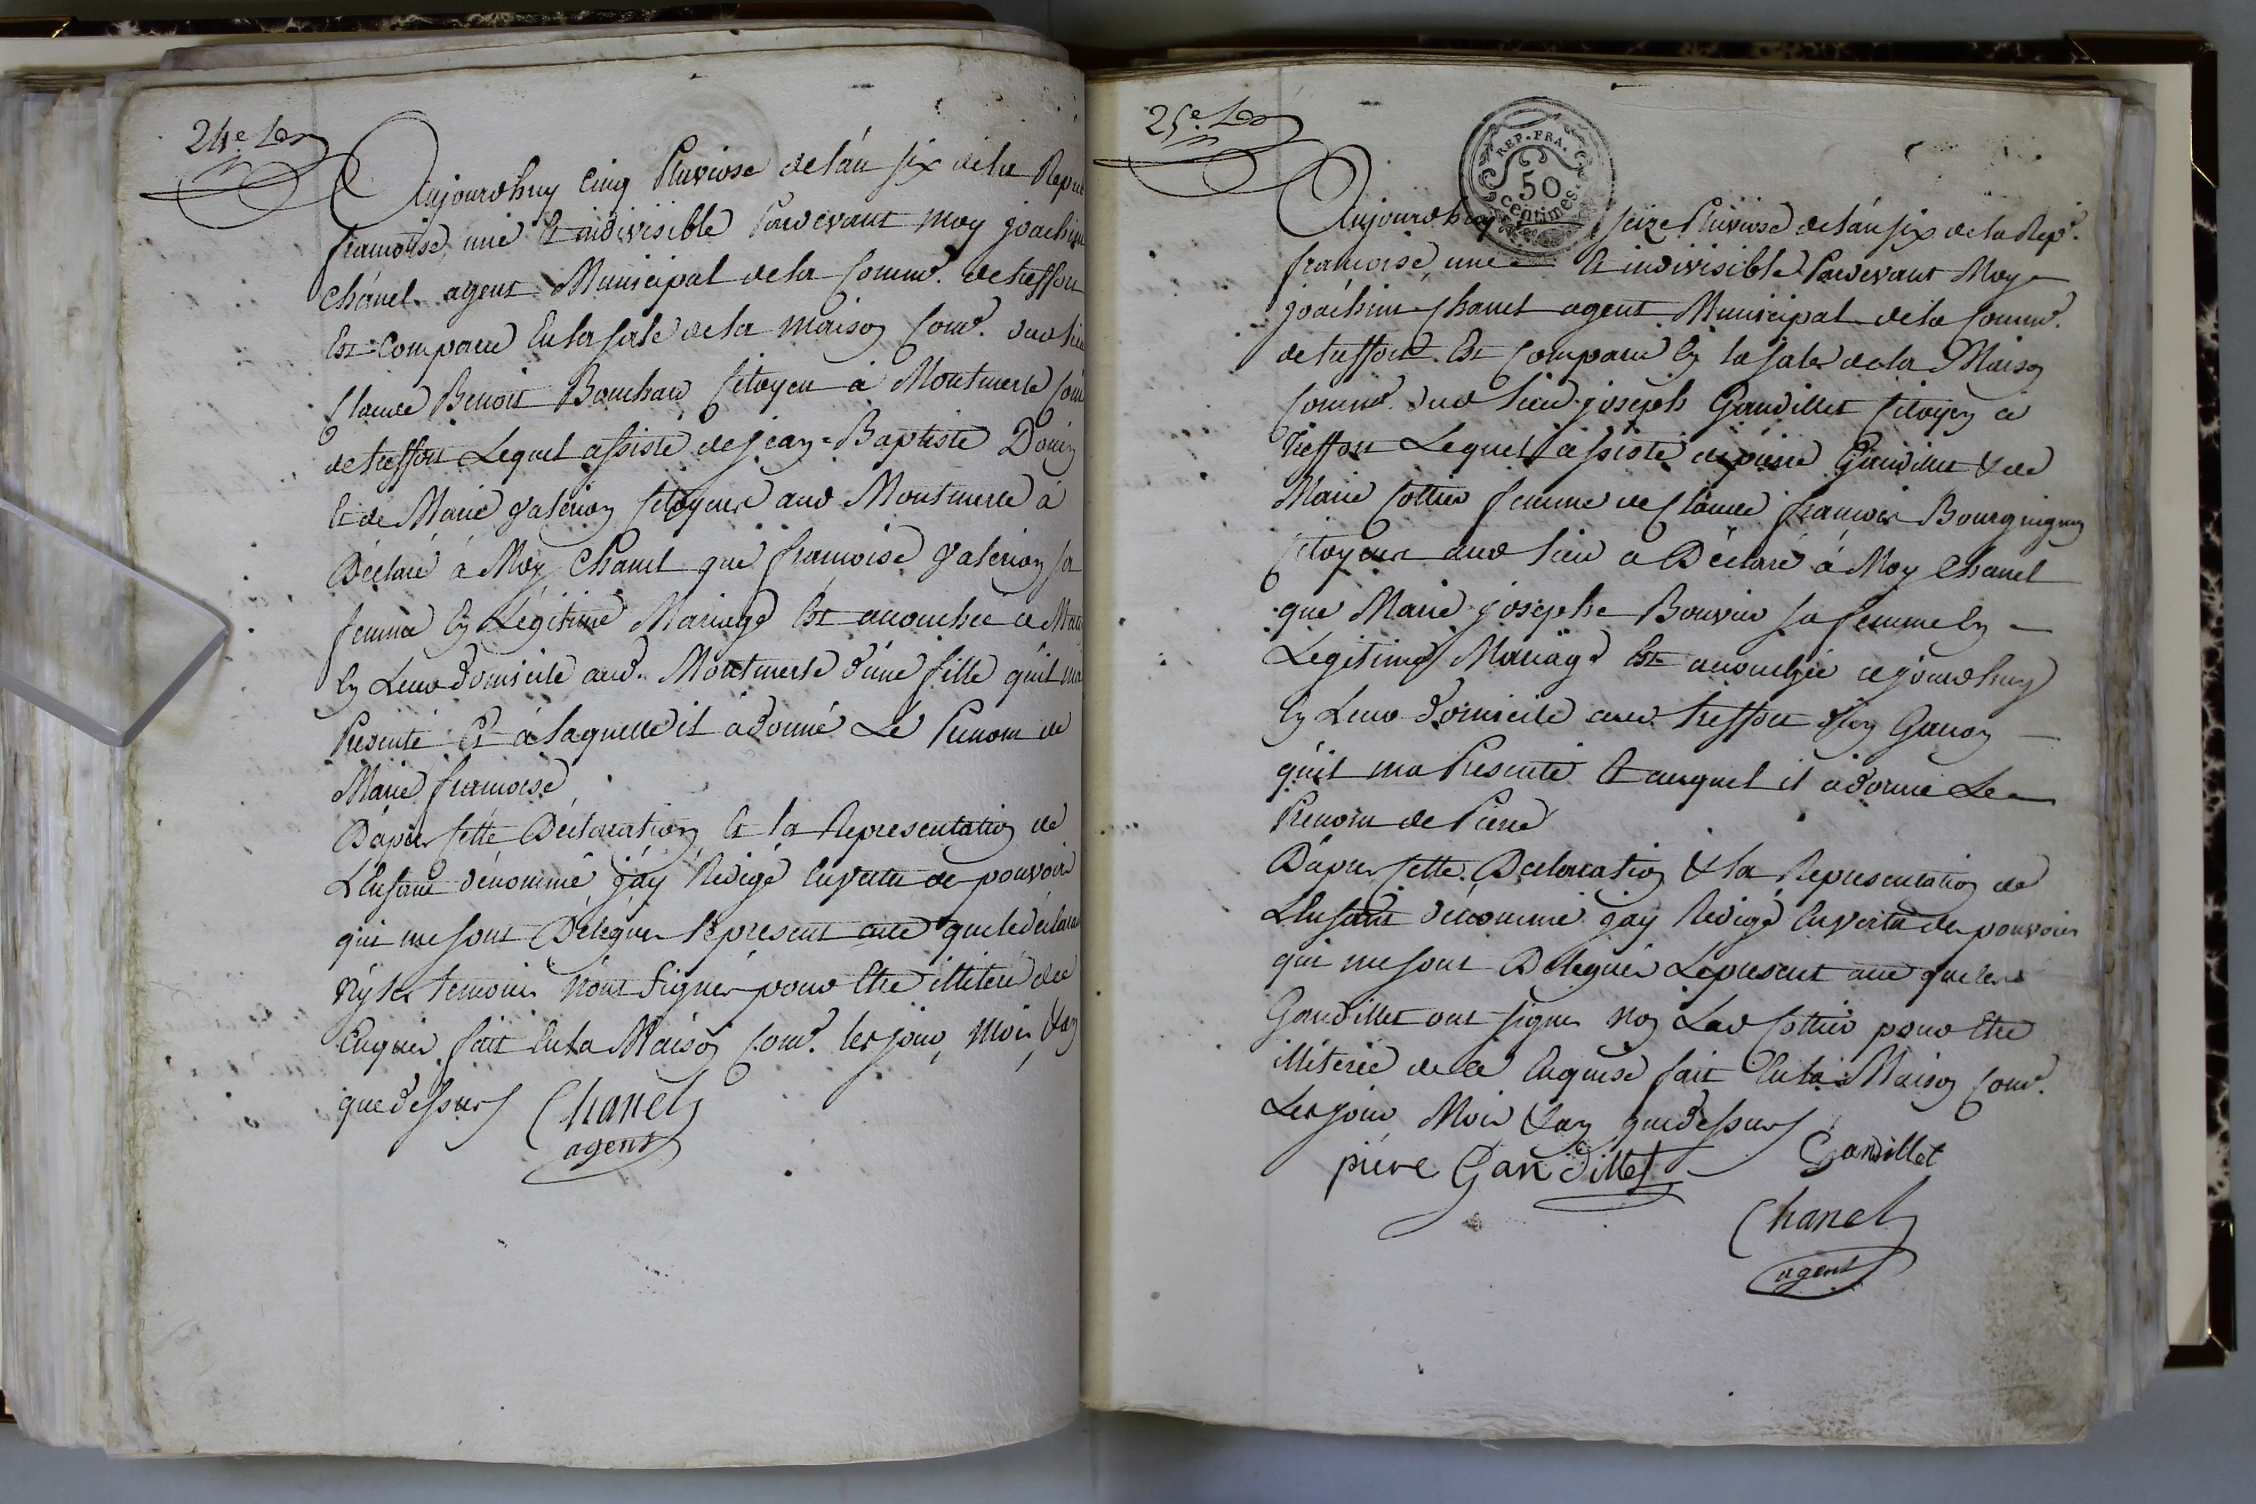 24e.
Aujourdhuy cinq Pluviose de lán six de la Repu
francoise, une et indivisible Pardevant moy joachim
Chánel agent Municipal de la Comme. de treffort
Est Comparu En la sale de la Maison Come. dud lieu
Claude Benoit Bouchard Citoyen à Montmerle Com
de treffort Lequel assisté de jean=Baptiste
Et de Marie Valérion Citoyens aud Montmerle à
Déclaré à Moy Chanel que francoise Valérion sa
femme En Légitime Mariage Est accouchée ce Mat
En Leur domicile aud. Montmerle d'une fille qúil ma
Présenté Et à laquelle il a donné Le Prenom de
Marie francoise
D'après Cette Déclaration Et la Representation de
L'Enfant dénommé j'áy Rédigé En vertu de pouvoirs
qui me sont Délégués le present acte que le déclarant
ny les temoins n'ont Signés pour Etre illiteré de ce
Enquis fait En la Maison Come. les jour, Mois, & an
que dessus Chanel
agent
25e.
REP. FRA.
50
centimes
Aujourdhuy seize Pluviose de lán six de la Repe.
francoise une Et indivisible Pardevant Moy
joáchim Chanel agent Municipal de la Comme.
de treffort Est Comparu En la sale de la Maison
Comme. dud lieu joseph Gandillet Citoyen à
treffort Lequel assisté de pierre Gandillet & de
Marie Cottier femme de Claude francois Bourguignon
Citoyens dud lieu a Déclaré à Moy Chanel
que Marie josephe Bouvier sa femme En
Legitime Mariage Est accouchée cejourdhuy
En Leur domicile aud. treffort d'un Garcon
qúil ma Présenté Et auquel il a donné Le
Prenom de Pierre
D'après Cette Declaration & la Representation de
L'Enfant dénommé j'áy Redigé En vertu des pouvoirs
qui me sont Délegués Le present acte que les
Gandillet ont signés non Lad Cottier pour Etre
illiterée de ce Enquise fait En la Maison Come.
Les jour Mois & an que dessus
piere Gandillet Gandillet
Chanel
agent